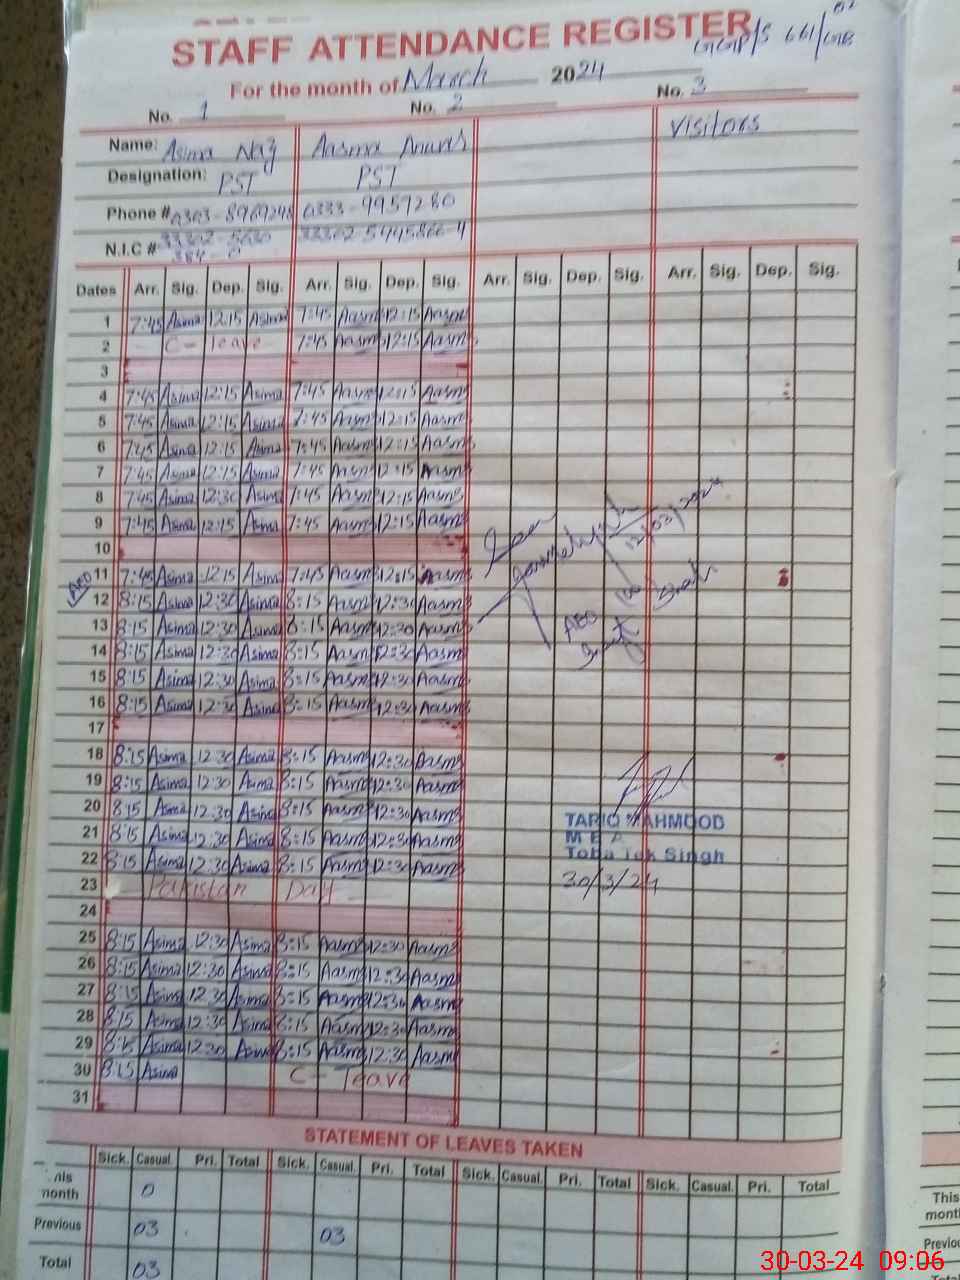 STAFF ATTENDANCE REGISTER
GGP/S 661/GB
For the month of March 2024
No. 1 No. 2 No. 3
Name: Asima Naz Aasma Visitors
Designation: PST PST
Phone # 0303-8969248 0333-9959280
N.I.C # 33302-5630 33302-5945866-4
384-0
Dates Arr. Sig. Dep. Sig. Arr. Sig. Dep. Sig. Arr. Sig. Dep. Sig. Arr. Sig. Dep. Sig.
1 7:45 Asima 12:15 Asima 7:45 Aasma 12:15 Aasma
2 C-leave 7:45 Aasm 12:15 Aasm
3
4 7:45 Asima 12:15 Asima 7:45 Aasm 12:15 Aasm
5 7:45 Asima 12:15 Asima 7:45 Aasm 12:15 Aasm
6 7:45 Asima 12:15 Asima 7:45 Aasm 12:15 Aasm
7 7:45 Asima 12:15 Asima 7:45 Aasm 12:15 Aasm
8 7:45 Asima 12:30 Asima 7:45 Aasm 12:15 Aasm
9 7:45 Asima 12:15 Asima 7:45 Aasm 12:15 Aasm
10
AEO 11 7:45 Asima 12:15 Asima 7:45 Aasm 12:15 Aasm
12 8:15 Asima 12:30 Asima 8:15 Aasm 12:30 Aasm
13 8:15 Asima 12:30 Asima 8:15 Aasm 12:30 Aasm
14 8:15 Asima 12:30 Asima 8:15 Aasm 12:30 Aasm
15 8:15 Asima 12:30 Asima 8:15 Aasm 12:30 Aasm
16 8:15 Asima 12:30 Asima 8:15 Aasm 12:30 Aasm
17
18 8:15 Asima 12:30 Asima 8:15 Aasm 12:30 Aasm
19 8:15 Asima 12:30 Asima 8:15 Aasm 12:30 Aasm
20 8:15 Asima 12:30 Asima 8:15 Aasm 12:30 Aasm
21 8:15 Asima 12:30 Asima 8:15 Aasm 12:30 Aasm
22 8:15 Asima 12:30 Asima 8:15 Aasm 12:30 Aasm
23 Pakistan Day
24
25 8:15 Asima 12:30 Asima 8:15 Aasm 12:30 Aasm
26 8:15 Asima 12:30 Asima 8:15 Aasm 12:30 Aasm
27 8:15 Asima 12:30 Asima 8:15 Aasm 12:30 Aasm
28 8:15 Asima 12:30 Asima 8:15 Aasm 12:30 Aasm
29 8:15 Asima 12:30 Asima 8:15 Aasm 12:30 Aasm
30 8:15 Asima C-leave
31
Seen
12/03/2024
AEO
TARIQ MAHMOOD
M E A
Toba Tek Singh
30/3/24
STATEMENT OF LEAVES TAKEN
Sick. Casual. Pri. Total Sick. Casual. Pri. Total Sick. Casual. Pri. Total Sick. Casual. Pri. Total
month 0
Previous 03 03
Total 03
This
month
Previou
Total
30-03-24 09:06